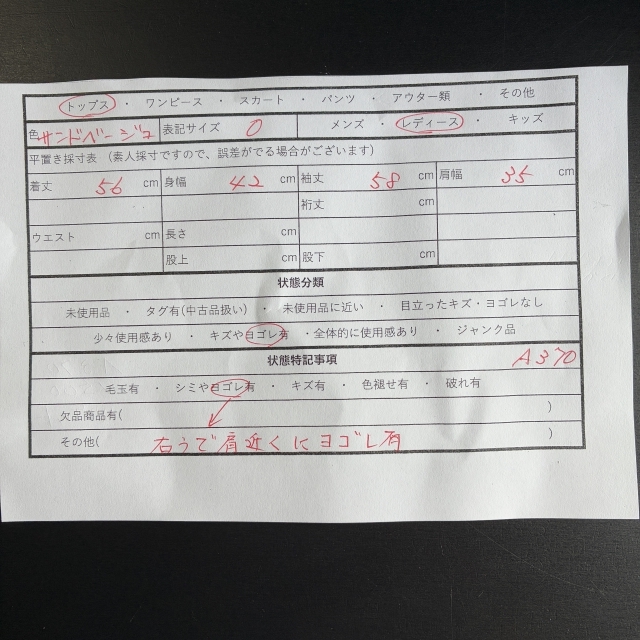 トップス ・ ワンピース ・ スカート ・ パンツ ・ アウター類 ・ その他
色 サンドベージュ 表記サイズ 0 メンズ ・ レディース ・ キッズ
平置き採寸表 (素人採寸ですので、誤差がでる場合がございます)
着丈 56 cm 身幅 42 cm 袖丈 58 cm 肩幅 35 cm
裄丈 cm
ウエスト cm 長さ cm
股上 cm 股下 cm
状態分類
未使用品 ・ タグ有(中古品扱い) ・ 未使用品に近い ・ 目立ったキズ・ヨゴレなし
少々使用感あり ・ キズやヨゴレ有 ・全体的に使用感あり ・ ジャンク品
状態特記事項 A370
毛玉有 ・ シミやヨゴレ有 ・ キズ有 ・ 色褪せ有 ・ 破れ有
欠品商品有( )
その他( 右うで肩近くにヨゴレ有 )